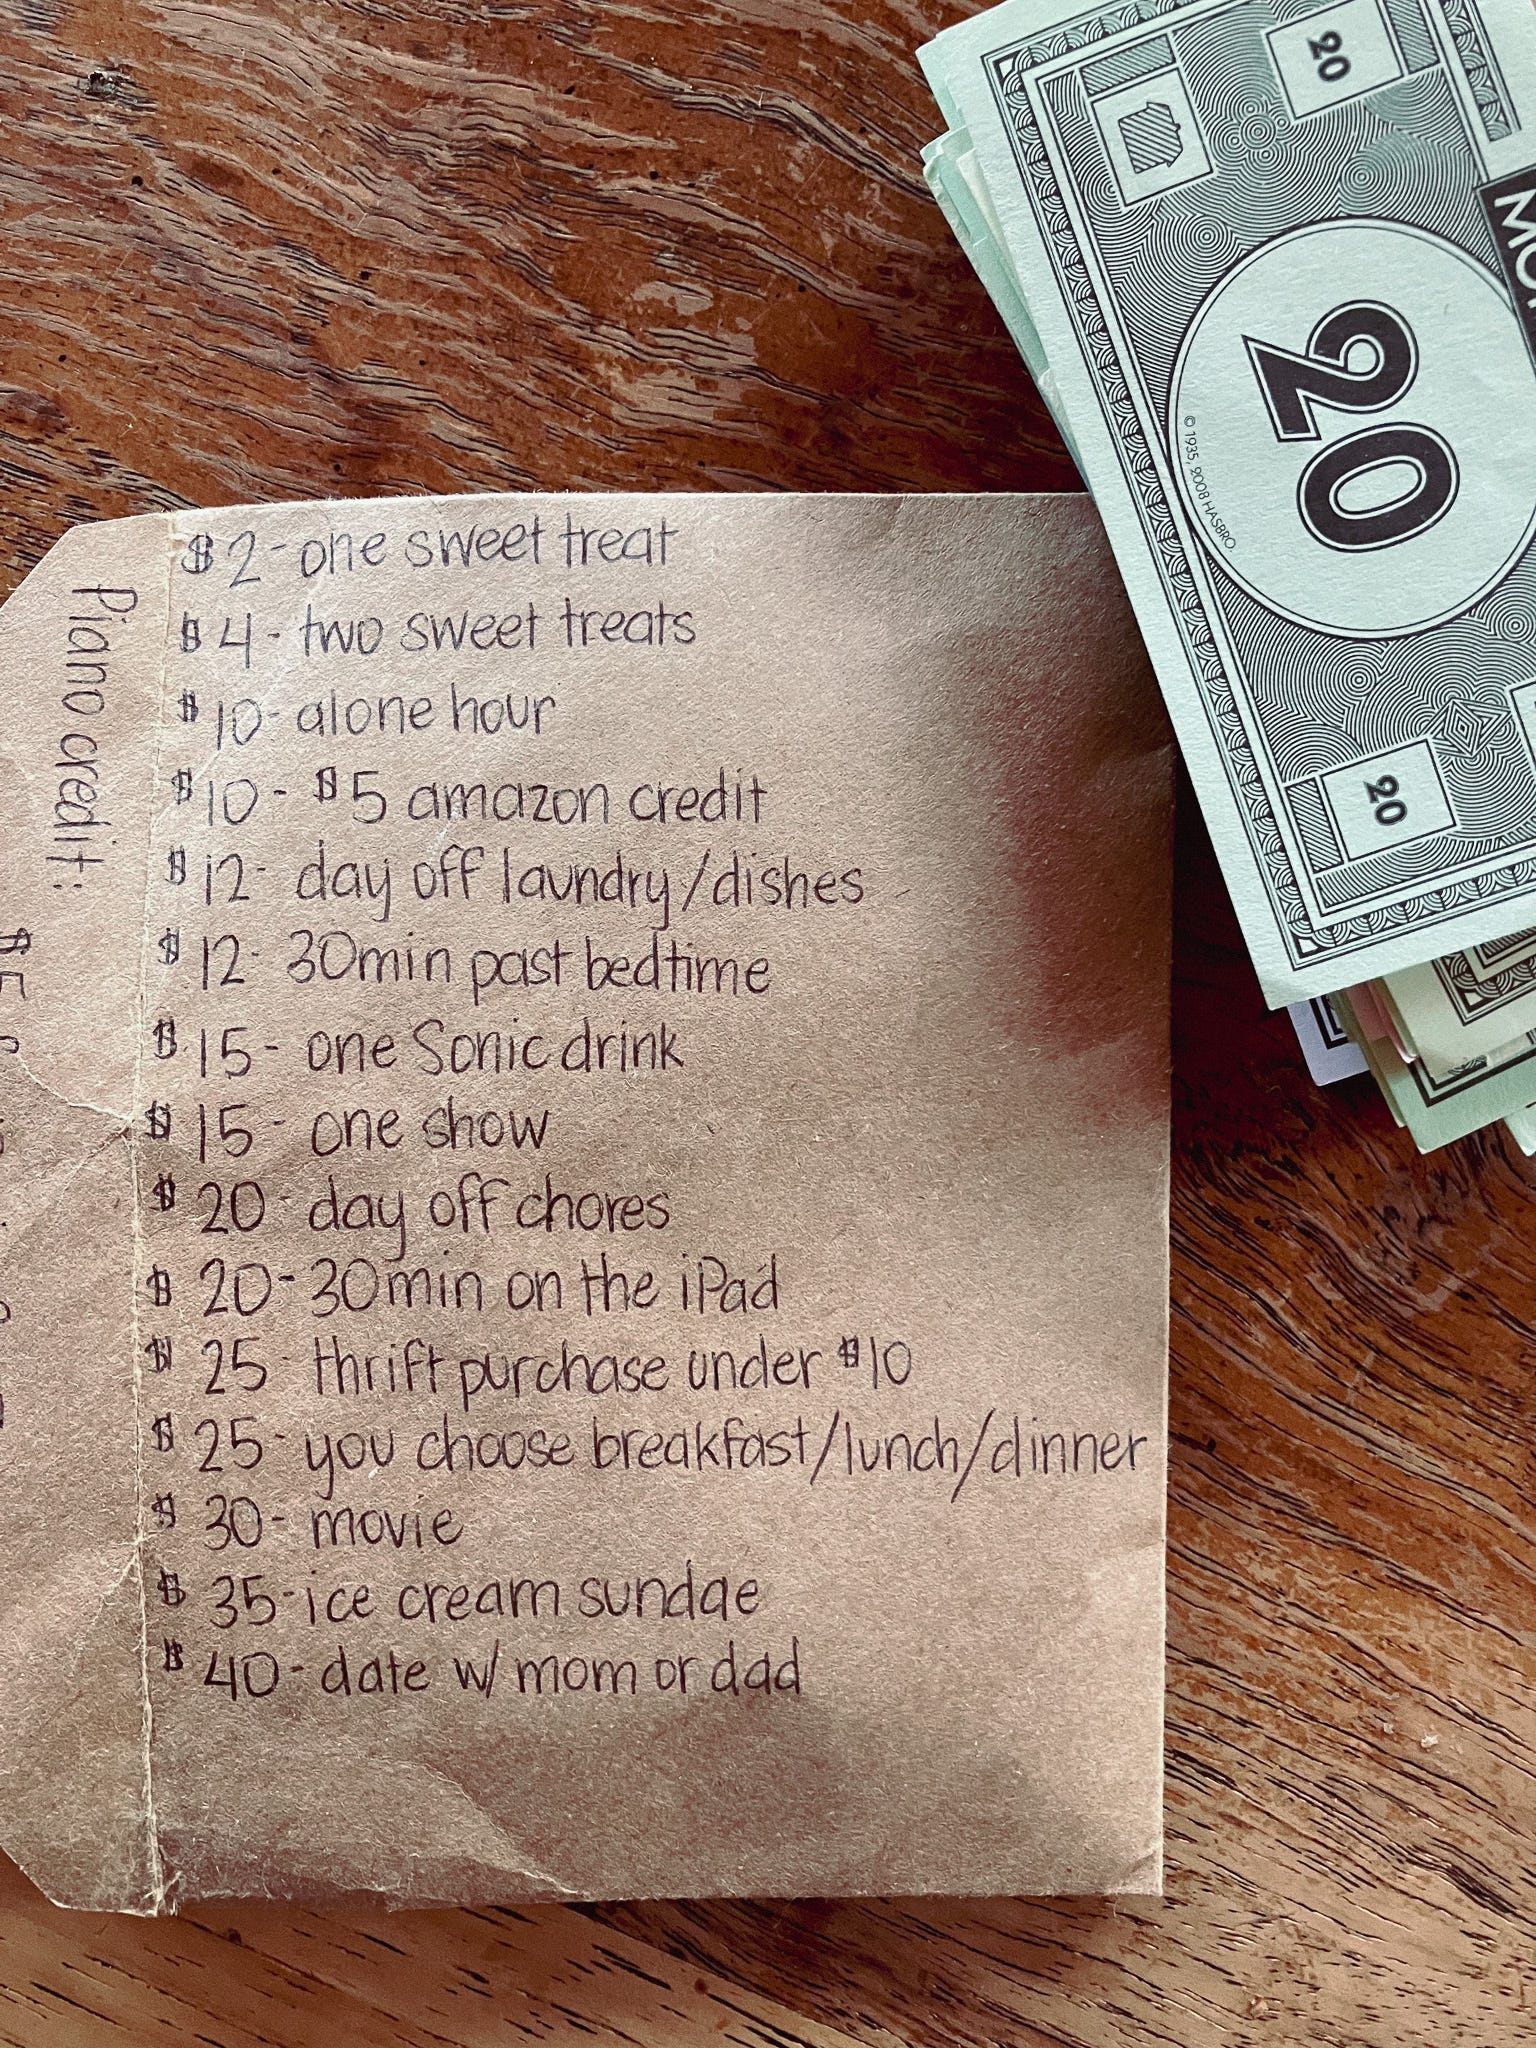 $2 - one sweet treat
$4 - two sweet treats
$10 - alone hour
$10 - $5 amazon credit
$12 - day off laundry/dishes
$12 - 30min past bedtime
$15 - one Sonic drink
$15 - one show
$20 - day off chores
$20 - 30min on the iPad
$25 - thrift purchase under $10
$25 - you choose breakfast/lunch/dinner
$30 - movie
$35 - ice cream sundae
$40 - date w/ mom or dad
Piano credit:
$5
20
20
20
© 1935, 2008 HASBRO.